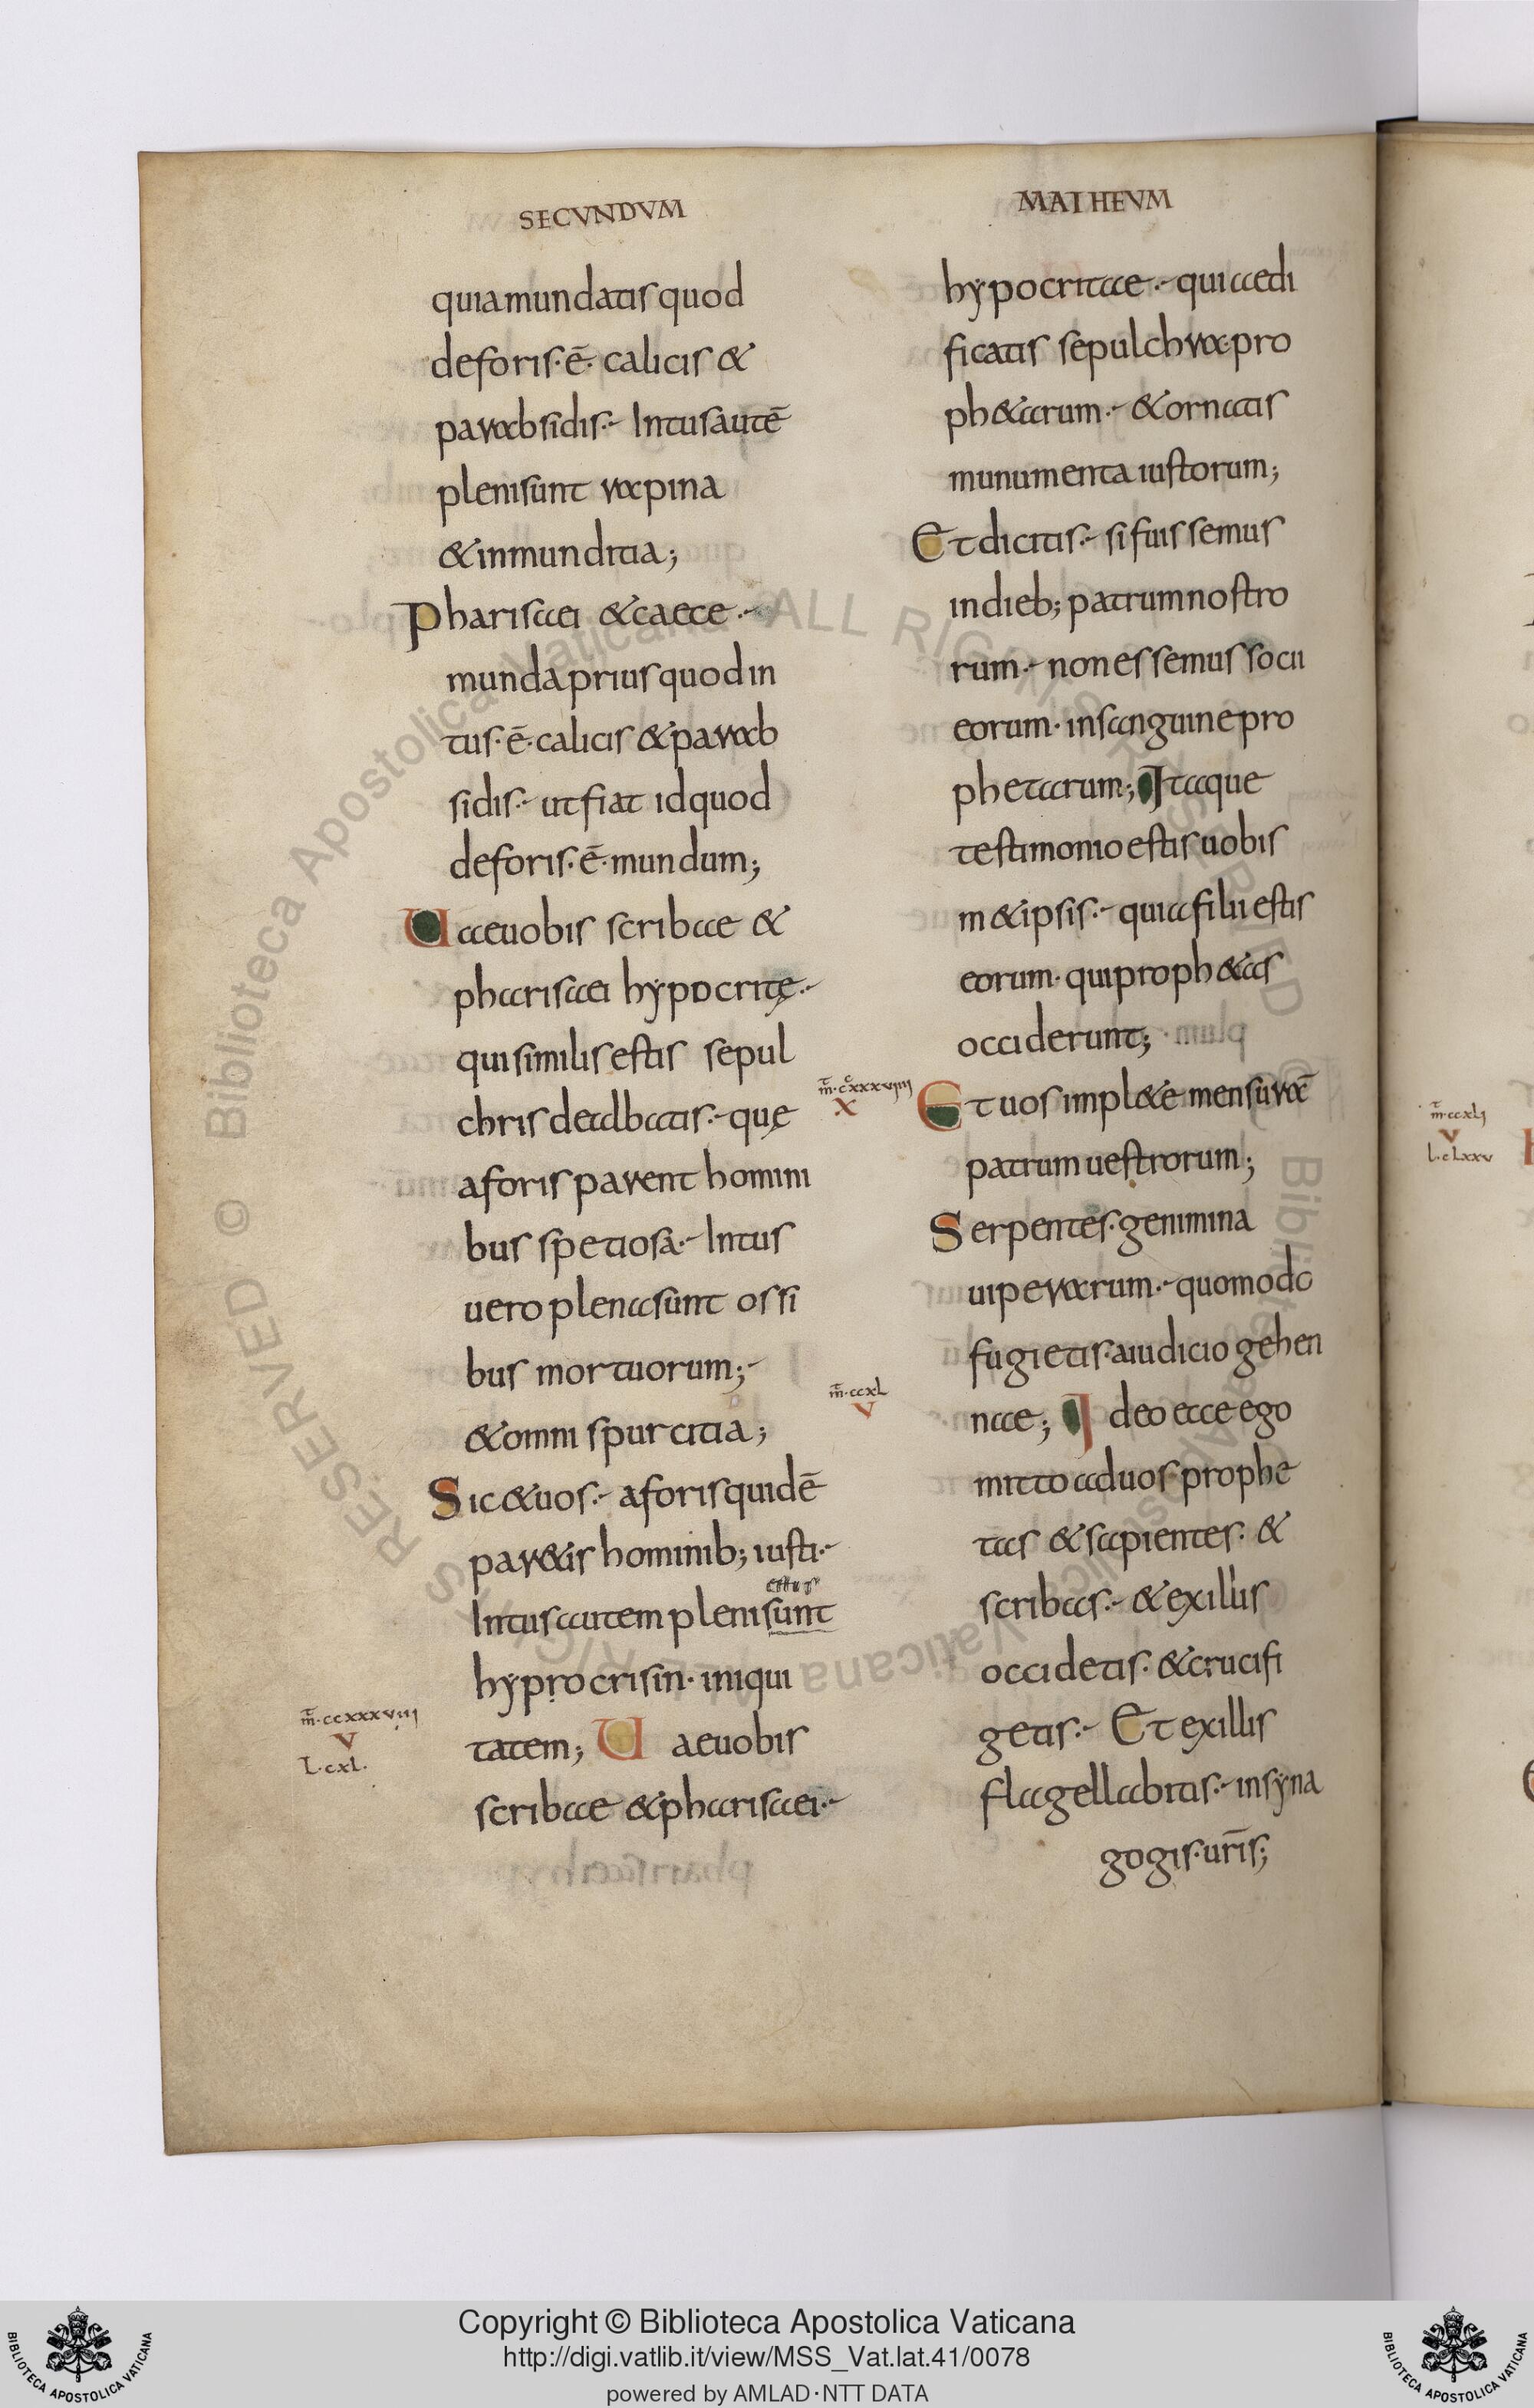 SECVNDVM
quia mundatis quod
deforis·ē· calicis &
parabsidis·- Intus autē
pleni sunt rapina
& inmunditia;
Pharisaei & caece·-
munda prius quod in
tus·ē·calicis & parab
sidis·- ut fiat id quod
deforis·ē·mundum;
Uae uobis scribae &
pharisaei hypocritę·-
qui similis estis sepul
chris dealbatis·- quę
aforis parent homini
bus spetiosa·- Intus
uero plena sunt ossi
bus mortuorum;-
& omni spurcitia;
Sic & uos·- aforis quidē
par&is hominib; iusti·-
estis
Intus autem pleni sunt
hyprocrisin· iniqui
m̄·ccxxxviii
V
L·cxl·
tatem; Uae uobis
scribae & pharisaei·-
MATHEVM
hypocritae·- qui aedi
ficatis sepulchra pro
ph&arum·- & ornatis
munumenta iustorum;
Et dicitis·- si fuissemus
in dieb; patrum nostro
rum·- non essemus socii
eorum· in sanguine pro
phetarum; Itaque
testimonio estis uobis
m&ipsis·- quia filii estis
eorum· qui proph&as
occiderunt;
m̄·ccxxxviiii
X
Et uos impl&e mensurā
patrum uestrorum;
Serpentes·genimina
uiperarum·- quomodo
fugietis·a iudicio gehen
m̄·ccxl
V
nae; Ideo ecce ego
mitto ad uos prophe
tas & sapientes· &
scribas·- & ex illis
occidetis· & crucifi
getis·- Et ex illis
flagellabitis·- in syna
gogis·ur̄is;
m̄·ccxli
V
L·clxxv
Copyright © Biblioteca Apostolica Vaticana
http://digi.vatlib.it/view/MSS_Vat.lat.41/0078
powered by AMLAD·NTT DATA
BIBLIOTECA APOSTOLICA VATICANA
BIBLIOTECA APOSTOLICA VATICANA